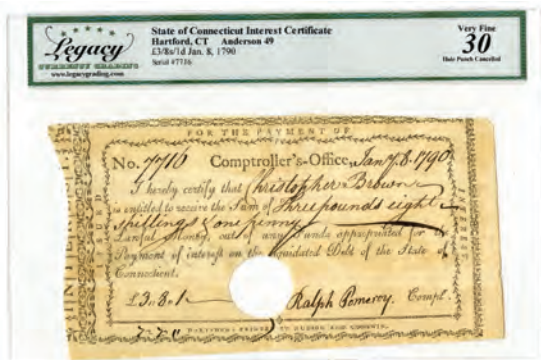 Legacy
CURRENCY GRADING
www.legacygrading.com
State of Connecticut Interest Certificate
Hartford, CT Anderson 49
£3/8s/1d Jan. 8, 1790
Serial #7716
Very Fine
30
Hole Punch Cancelled
FOR THE PAYMENT OF
No. 7716 Comptroller's-Office, Jany. 8. 1790
I hereby certify that Christopher Brown
is entitled to receive the Sum of Three pounds eight
shillings & one penny
Lawful Money, out of any Funds appropriated for the
Payment of interest on the liquidated Debt of the State of
Connecticut.
£3.8.1
Ralph Pomeroy. Compt.
INTEREST
HARTFORD: PRINTED BY HUDSON AND GOODWIN.